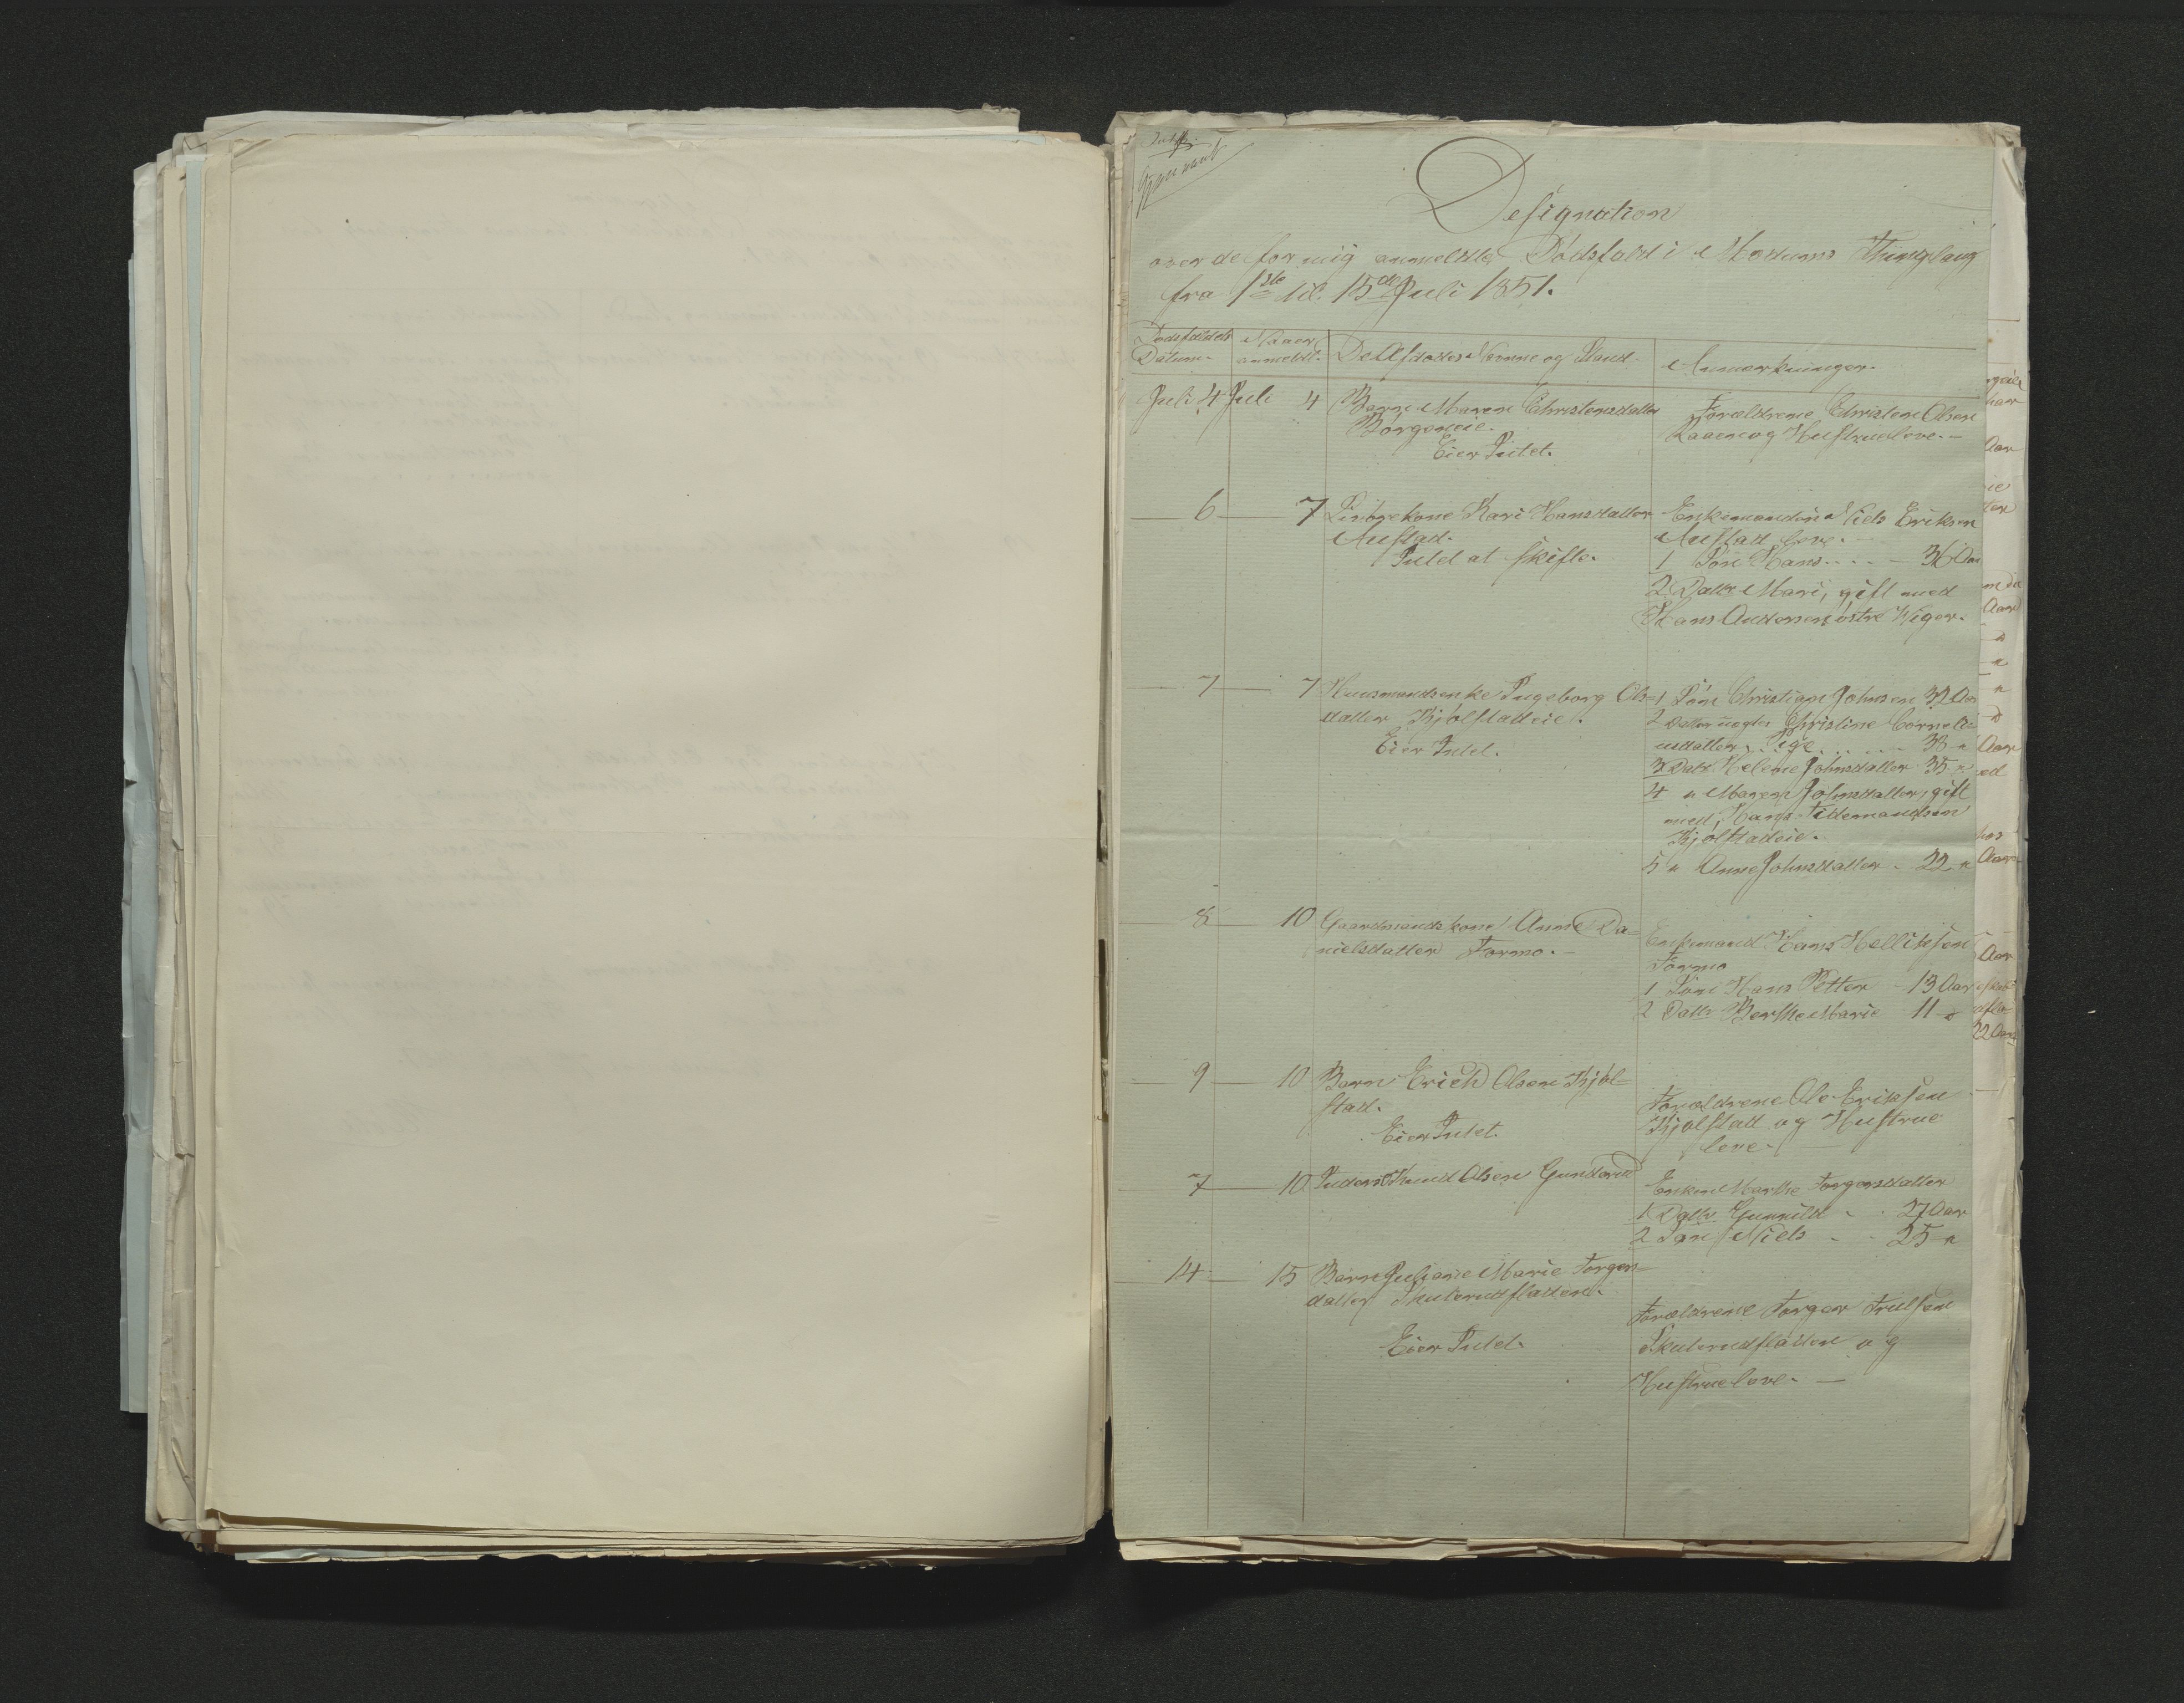 Designation
over de for mig anmeldte Dödsfald i Modums Thinglaug
fra 1ste til 15de Juli 1851.
Dödsfaldets Datum.
Naar anmeldt.
De Afdödes Navne og Stand.
Anmærkninger.
Juli 4 Juli 4 Barn Maren Christensdatter
Börgeneie.
Eier Intet.
Forældrene Christen Olsen
og Hustrue leve.
6 7 Kari Hansdatter
Austad.
Intet at skifte.
Enkemanden Niels Eriksen
Austad leve.
1 Sön Hans 36 Aar
2 Datter Mari, gift med
Hans Andersen östre Wiger.
7 7 Huusmandsenke Ingeborg Ols=
datter Kjölstadeie.
Eier Intet.
1 Sön Christian Johnsen 32 Aar
2 Datter uægte Christine Corneli=
usdatter, ugt. 38 "
3 Datr Helene Johnsdatter 35 "
4 " Maren Johnsdatter, gift
med Hans Tidemandsen
Kjölstadeie.
5 " Anne Johnsdatter 22 "
8 10 Gaardmandskone Anne Da=
nielsdatter Formo.
Enkemand Hans Hellissen
Formo
1 Sön Hans Petter 13 Aar
2 Datr Berthe Marie 11 "
9 10 Barn Erich Olsen Kjöl=
stad.
Eier Intet.
Forældrene Ole Eriksen
Kjölstad og Hustrue
leve.
7 10 Inders Knud Olsen Gunderud
Enken Marthe Torgersdatter
1 Datr Gunnild 27 Aar
2 Sön Niels 25 "
14 15 Barn Juliane Marie Torgers=
datter Skuterudflaten.
Eier Intet.
Forældrene Torger Trulsen
Skuterudflaten og
Hustrue leve.